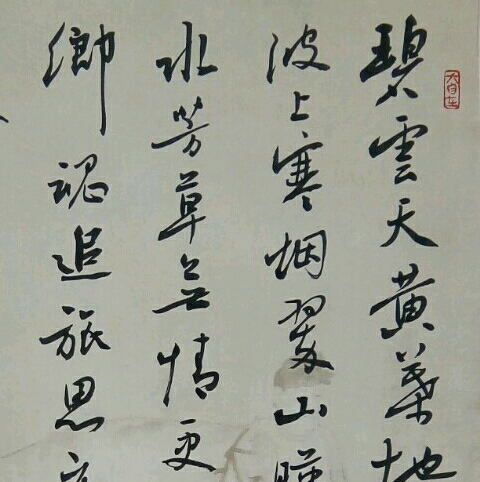 碧雲天黄葉地
波上寒烟翠山映
水芳草無情更
鄉魂追旅思
大自在